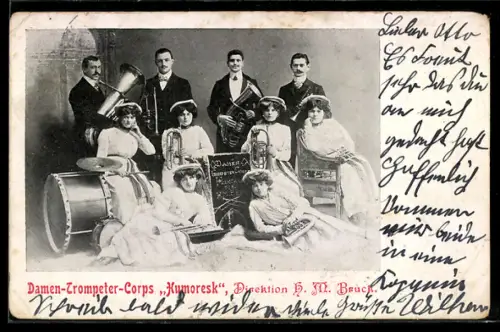 Damen-
Damen-Trompeter-Corps „Humoresk“, Direktion H. M. Bruck.
Lieber Otto
Es freut
sehr das du
an mich
gedacht hast
Hoffentlich
kommen
wir beide
in eine
Schreib bald wieder viele Grüße Wilhem